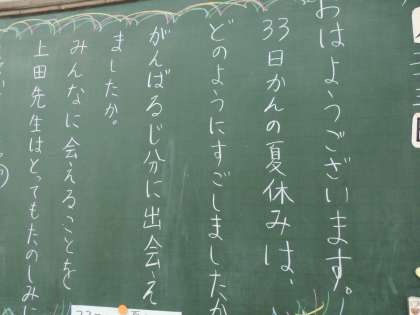 おはようございます。
33日かんの夏休みは、
どのようにすごしましたか
がんばるじ分に出会え
ましたか。
みんなに会えることを
上田先生はとってもたのしみに